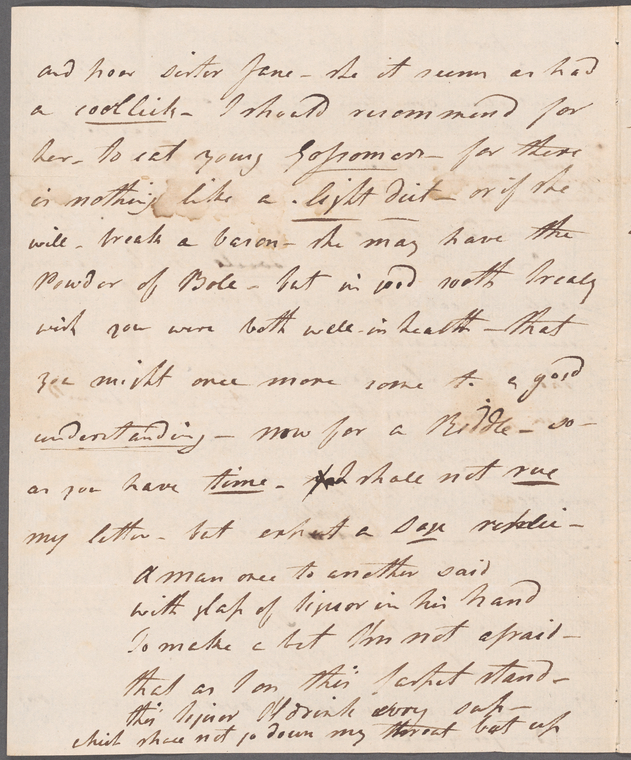 and poor sister Jane - she it seems as had
a coollick - I should recommend for
her - to eat young Gossomers - for there
is nothing like a - light diet - or if she
will - break a bason - she may have the
Powder of Bole - but in good sooth I realy
wish you were both well in health - that
you might once more come to a good
understanding - now for a Riddle - so -
as you have time - shall not rue
my letter - but a sage replie -
A man once to another said
with glass of liquor in his hand
To make a bet I'm not afraid -
that as I on this carpet stand -
this liquor I'll drink every sup -
which shall not go down my throat but up